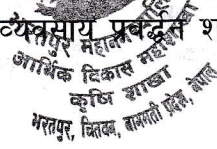 व्यवसाय प्रवर्द्धन श
भरतपुर महानगर
आर्थिक विकास महाशाखा
कृषि शाखा
भरतपुर, चितवन, बागमती प्रदेश, नेपाल